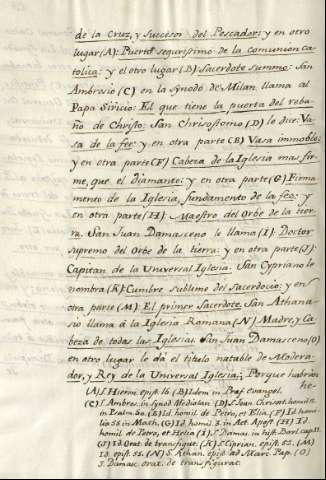 de la Cruz, y Succesor del Pescador: y en otro
lugar (A): Puerto segurissimo de la comunion ca
tolica: y el otro lugar (B): Sacerdote summo: San
Ambrosio (C) en la Synodo de Milan llama al
Papa Siricio: El que tiene la puerta del reba
ño de Christo: San Chrisostomo (D) lo dice: Va
sa de la fee: y en otra parte (E) Vasa immoble:
y en otra parte (F) Cabeza de la Iglesia mas fir
me, que el diamante: y en otra parte (G) Firma
mento de la Iglesia, fundamento de la fee: y
en otra parte (H): Maestro del Orbe de la tier
ra. San Juan Damasceno le llama (I): Doctor
supremo del Orbe de la tierra: y en otra parte (J):
Capitan de la Universal Iglesia. San Cypriano le
nombra (K): Cumbre sublime del Sacerdocio: y en
otra parte (M): El primer Sacerdote. San Athana
sio llama á la Iglesia Romana (N) Madre, y Ca
beza de todas las Iglesias. San Juan Damasceno (O)
en otro lugar le dá el titulo notable de Modera
dor, y Rey de la Universal Iglesia: Porque habrán
he-
(A) S. Hieron. epist. 16. (B) Idem in Praf. evangel.
(C) S. Ambros. in Synod. Mediolan. (D) S. Joan Chrisost. homil.
in Psalm. 50. (E) Id. homil. de Petro, et Elia. (F) Id. homi
lia 55 in Math. (G) Id. hom. 3. in Act. Apost. (H) Id.
homil. de Petro, et Helia. (I) Sn. Damas. in hist. Barl. cap. 11.
(J) Id. Orat. de transfigur. (K) S. Ciprian. epist. 52. (M)
Id. epist. 55. (N) S. Athan. epist. ad Marc. Pap. (O)
S. Damasc. orat. de transfigurat.